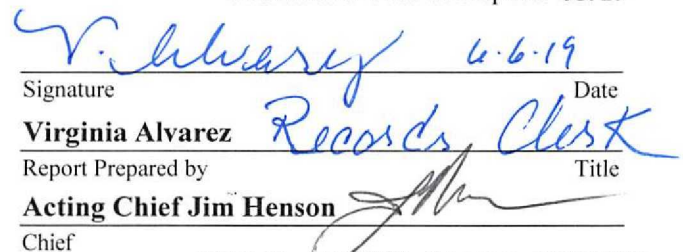 V. Alvarez 6.6.19
Signature Date
Virginia Alvarez Records Clerk
Report Prepared by Title
Acting Chief Jim Henson
Chief